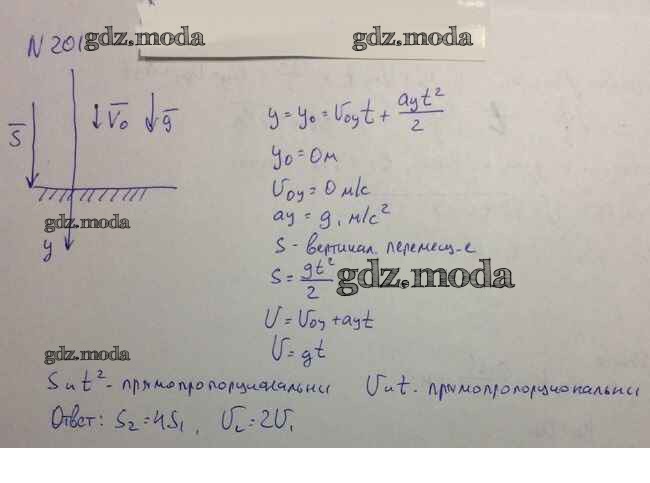 N 201 gdz.moda gdz.moda
S̅
V̅₀ g̅
gdz.moda
y
y = y₀ = V₀yt + ayt²/2
y₀ = 0 м
V₀y = 0 м/с
ay = g, м/с²
S - вертикал. перемещ-е
S = gt²/2 gdz.moda
V = V₀y + ayt
V = gt
gdz.moda
S и t² - прямопропорциональны V и t - прямопропорциональны
Ответ: S₂ = 4S₁, V₂ = 2V₁